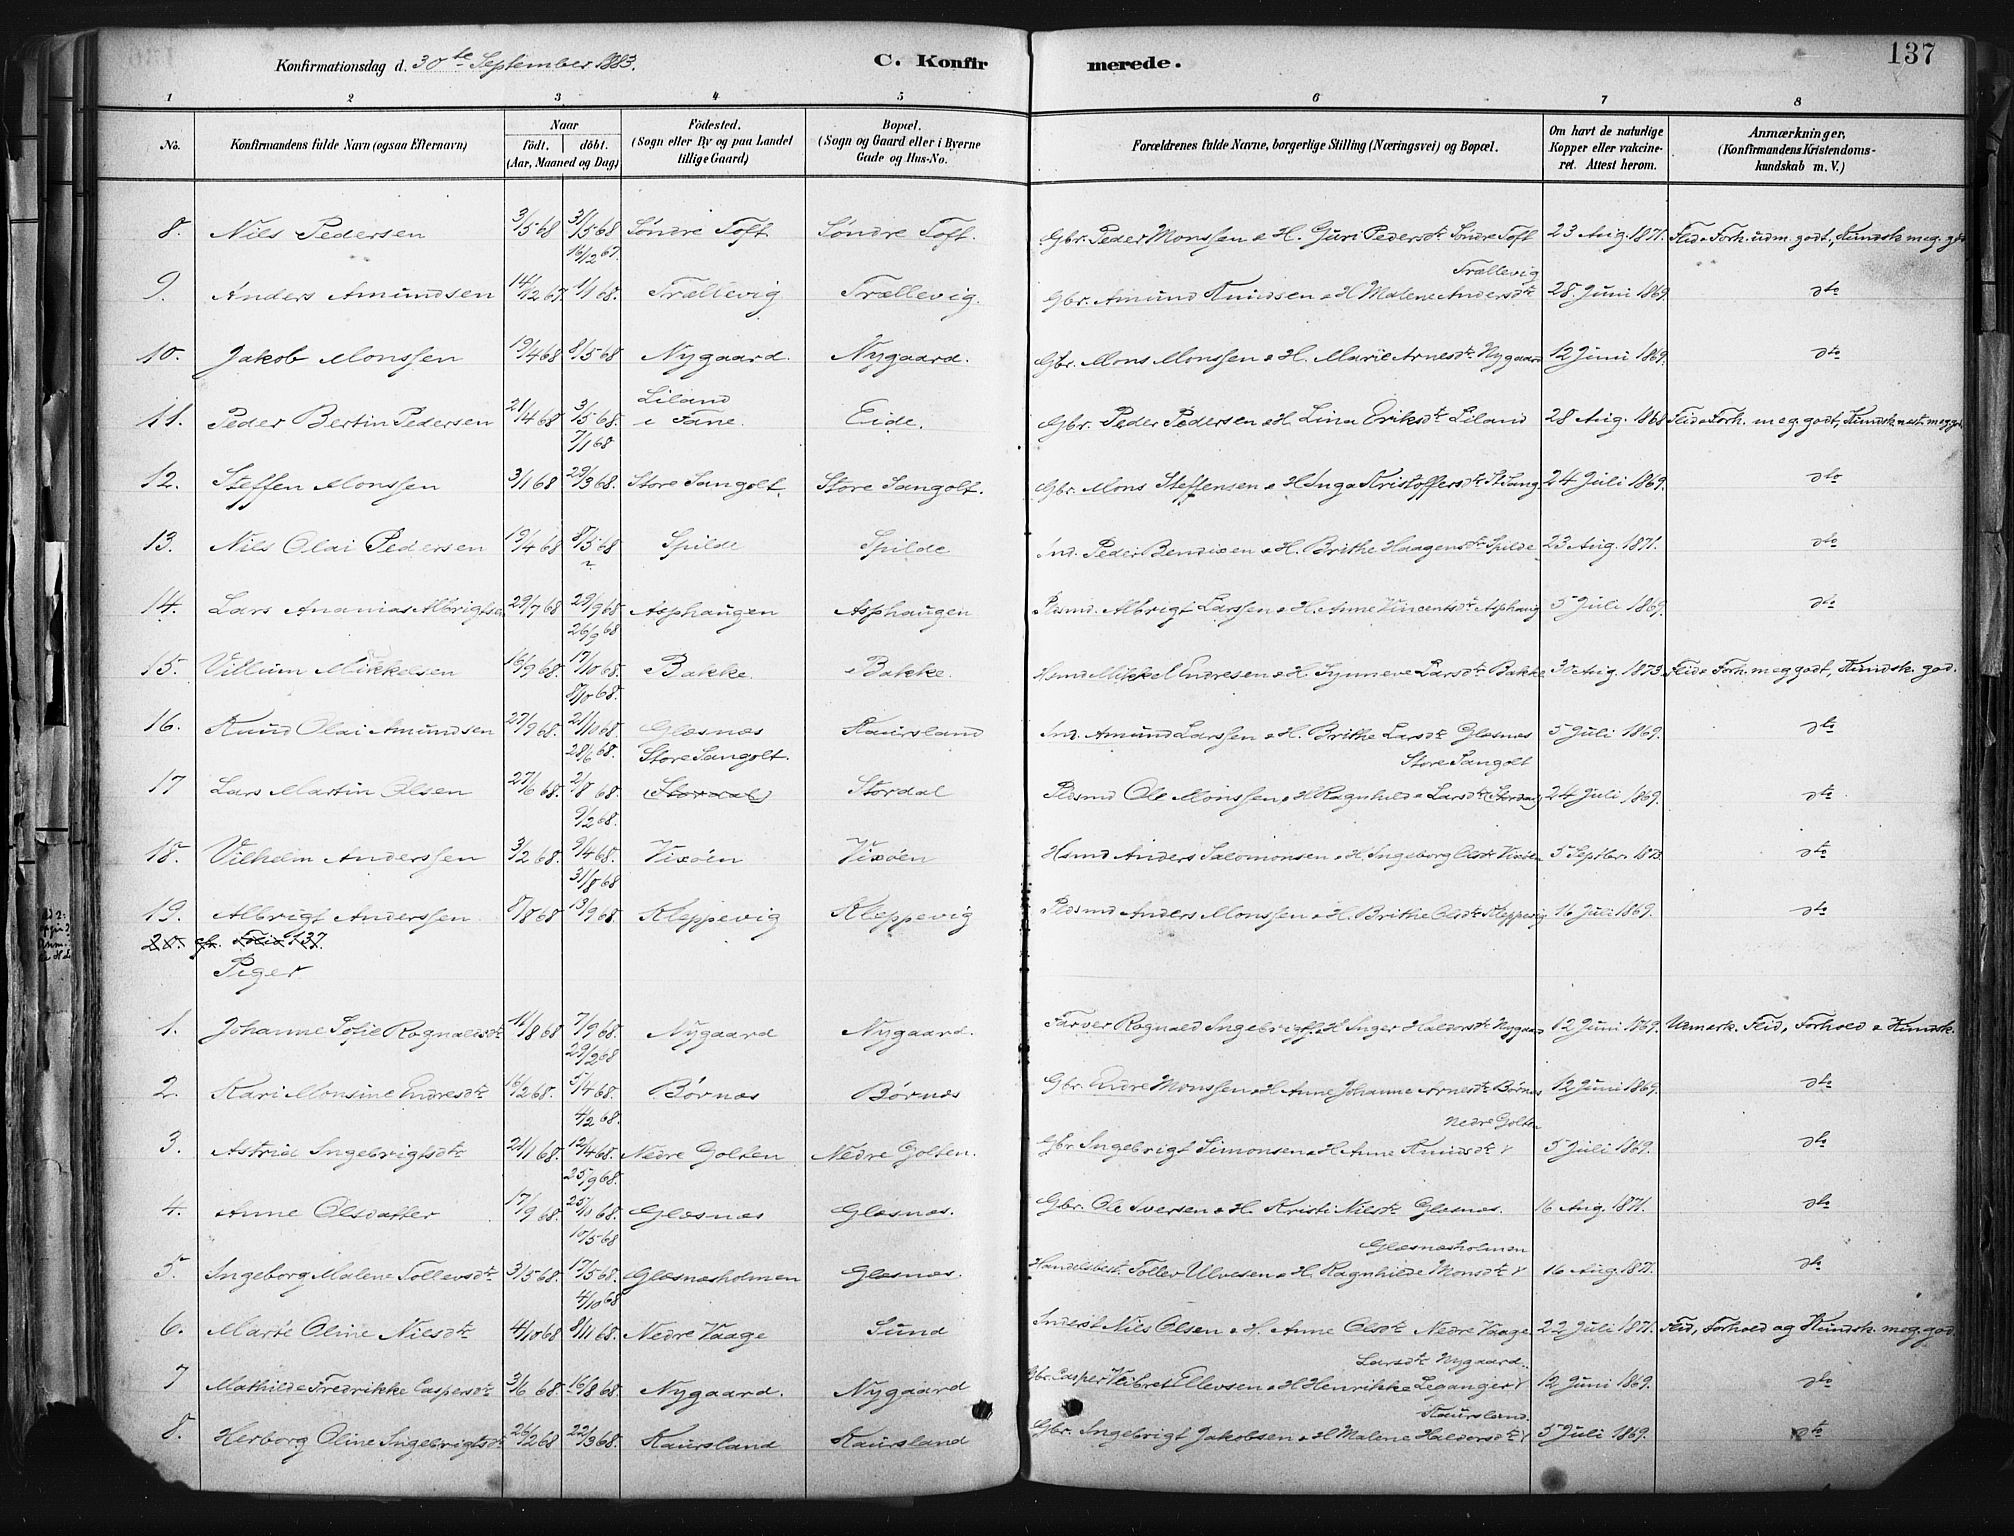 137
Konfirmationsdag d. 30te September 1883.
C. Konfirmerede.
1 2 3 4 5 6 7 8
No.
Konfirmandens fulde Navn (ogsaa Efternavn)
Naar
Födt. döbt.
(Aar, Maaned og Dag)
Födested.
(Sogn eller By og paa Landet
tillige Gaard)
Bopæl.
(Sogn og Gaard eller i Byerne
Gade og Hus-No.
Forældrenes fulde Navne, borgerlige Stilling (Næringsvei) og Bopæl.
Om havt de naturlige
Kopper eller vakcine-
ret. Attest herom.
Anmærkninger,
(Konfirmandens Kristendoms-
kundskab m. V.)
8. Nils Pedersen 3/5 68 31/5 68 Søndre Toft Søndre Toft. Gbr. Peder Monssen o H. Guri Pedersdtr Søndre Toft 23 Aug. 1871. Flid o Forh. udm. godt, Kundsk. meg. god
16/12 67. Trællevig
9. Anders Amundsen 14/12 67. 1/1 68. Trællevig Trællevig. Gbr. Amund Knudsen o H Malene Andersdtr 28. Juni 1869. dto
10. Jakob Monssen 19/4 68 8/5 68 Nygaard. Nygaard. Gbr. Mons Monssen o H. Marie Arnesdtr Nygaard 12 Juni 1869. dto
Liland
11. Peder Bertin Pedersen 21/4 68 3/5 68. i Fane. Eide. Gbr. Peder Pedersen o H. Lina Eriksdtr Liland 28 Aug. 1868 Flid o Forh. meg. godt, Kundsk. næst. meg god
7/1 68
12. Steffen Monssen 3/1 68 29/3 68. Store Sangolt. Store Sangolt. Gbr. Mons Steffensen o H Inga Kristoffersdtr 24 Juli 1869. dto
13. Nils Olai Pedersen 19/4 68 8/5 68 Spilde Spilde Ind. Peder Bendixen o H. Brithe Haagensdtr Spilde 23 Aug. 1871. dto
14. Lars Ananias Albrigtsen 29/7 68 29/9 68 Asphaugen Asphaugen Pldsmd. Albrigt Larssen o H. Anne Vincentsdtr Asphaug 5 Juli 1869. dto
26/9 68
15. Villum Mikkelsen 16/9 68. 17/10 68. Bakke. Bakke. Hsmd Mikkel Endresen o H. Synneve Larsdtr Bakke 30 Aug. 1873 Flid o Forh. meg godt, Kundsk. god.
8/10 68.
16. Knud Olai Amundsen 27/9 68. 21/10 68. Glæsnæs Kaursland Ind. Amund Larssen o H. Brithe Larsdtr Glæsnæs 5 Juli 1869. dto
28/6 68. Store Sangolt. Store Sangolt
17 Lars Martin Olsen 27/6 68. 2/8 68. (Stordal) Stordal Pldsmd Ole Monssen o H Ragnhilde Larsdtr (Stordal) 24 Juli 1869. dto
9/2 68.
18. Vilhelm Anderssen 3/2 68. 9/4 68. Vixøen Vixøen Hsmd Anders Salomonsen o H. Ingeborg Olsdtr Vixøen 5 Septbr. 1873 dto
31/8 68
19. Albrigt Anderssen 8/8 68 13/9 68. Kleppevig Kleppevig Pldsmd Anders Monssen o H. Brithe Olsdtr Kleppevig 16 Juli 1869. dto
20. cfr. Folio 137.
Piger
1. Johanne Sofie Rognaldsdtr 11/8 68 7/9 68. Nygaard Nygaard. Farver Rognald Ingebrigts. o H Inger Haldorsdtr Nygaard 12 Juni 1869. Udmærk. Flid, Forhold o Kundsk.
29/2 68
2. Kari Monsine Endresdtr 16/2 68. 5/4 68. Børnæs Børnæs Gbr. Endre Monssen o H Anne Johanne Arnesdtr Børnæs 12 Juni 1869. dto
4/2 68. Nedre Golten
3. Astrid Ingebrigtsdtr 21/1 68. 12/4 68. Nedre Golten Nedre Golten. Gbr Ingebrigt Simonsen o H Anne Knudsdtr 5 Juli 1869. dto
25/9 68.
4. Anne Olsdatter 17/9 68. 25/10 68 Glæsnæs Glæsnæs. Gbr. Ole Iversen o H. Kristi Nilsdtr Glæsnæs. 16 Aug. 1871. dto
10/5 68 Glæsnæsholmen
5. Ingeborg Malene Tollevsdtr 3/5 68. 17/5 68. Glæsnæsholmen Glæsnæs. Handelsbest. Tollev Ulvesen o H. Ragnhilde Monsdtr 16 Aug. 1871. dto
4/10 68
6. Marte Oline Nilsdtr 4/10 68 8/11 68. Nedre Vaage Sund Inderst Nils Olsen o H. Anne Olsdtr Nedre Vaage. 22 Juli 1871. Flid, Forhold og Kundsk. meg. god
Larsdtr Nygaard.
7 Mathilde Fredrikke Caspersdtr 3/6 68. 16/8 68. Nygaard. Nygaard Gbr. Casper Ellevsen o H Henrikke Leganger 12 Juni 1869. dto
Kaursland.
8. Herborg Oline Ingebrigtsdtr 26/2 68 22/3 68. Kaursland Kaursland Gbr. Ingebrigt Jakobsen o H Malene Haldorsdtr 5 Juli 1869. dto